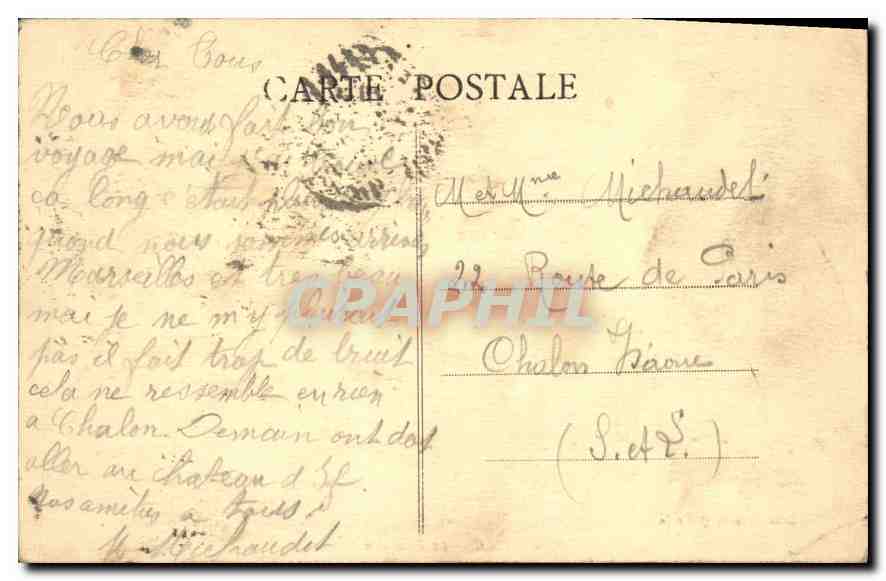 CARTE POSTALE
Cher Tous
Nous avons fait bon
voyage mai
ca long c'etait
quand nous sommes arrivés
Marseilles et tres beau
mai je ne m'y plairait
pas il fait trop de bruit
cela ne ressemble en rien
a Chalon. Demain ont doit
aller au chateau d If.
Nos amities a tous
M Michaudet
M et Mme Michaudet
22 Route de Paris
Chalon s/Saone
(S. et L.)
CPAPHIL